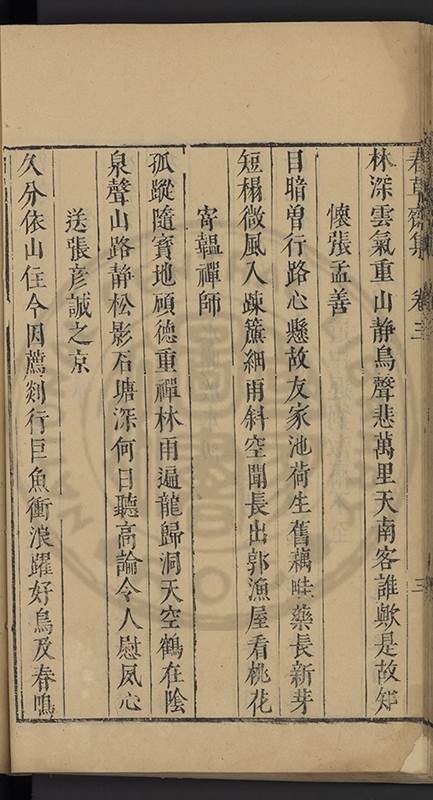 春草齋集 卷三 三
林深雲氣重山静鳥聲悲萬里天南客誰歟是故知
懷張孟善
目暗曽行路心懸故友家池荷生舊藕畦藥長新芽
短榻微風入疎簾細雨斜空聞長出郭漁屋看桃花
寄韞禪師
孤蹤隨寳地碩德重禪林雨遍龍歸洞天空鶴在陰
泉聲山路静松影石塘深何日聽高論令人慰夙心
送張彦誠之京
久分依山住今因薦剡行巨魚衝浪躍好鳥及春鳴